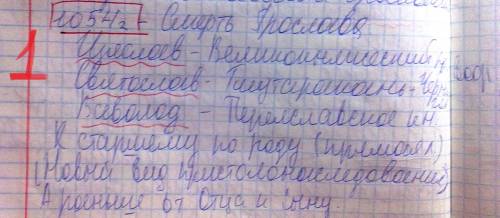 1
1054г - Смерть Ярослава
Изяслав - Великокняжеский
Святослав - Тмутаракань -
Всеволод - Переяславское кн.
К старшему по роду (прямоял)
(Новый вид престолонаследования)
А раньше от Отца и сыну.